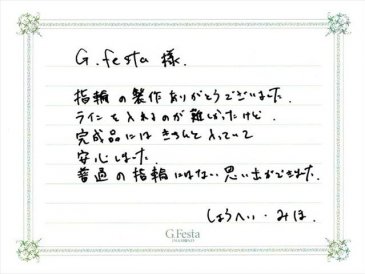 G.festa 様.
指輪の製作ありがとうございました.
ラインを入れるのが難しかったけど.
完成品にはきちんと入っていて
安心しました.
普通の指輪にはない思い出ができました.
しょうへい・みほ.
G.Festa